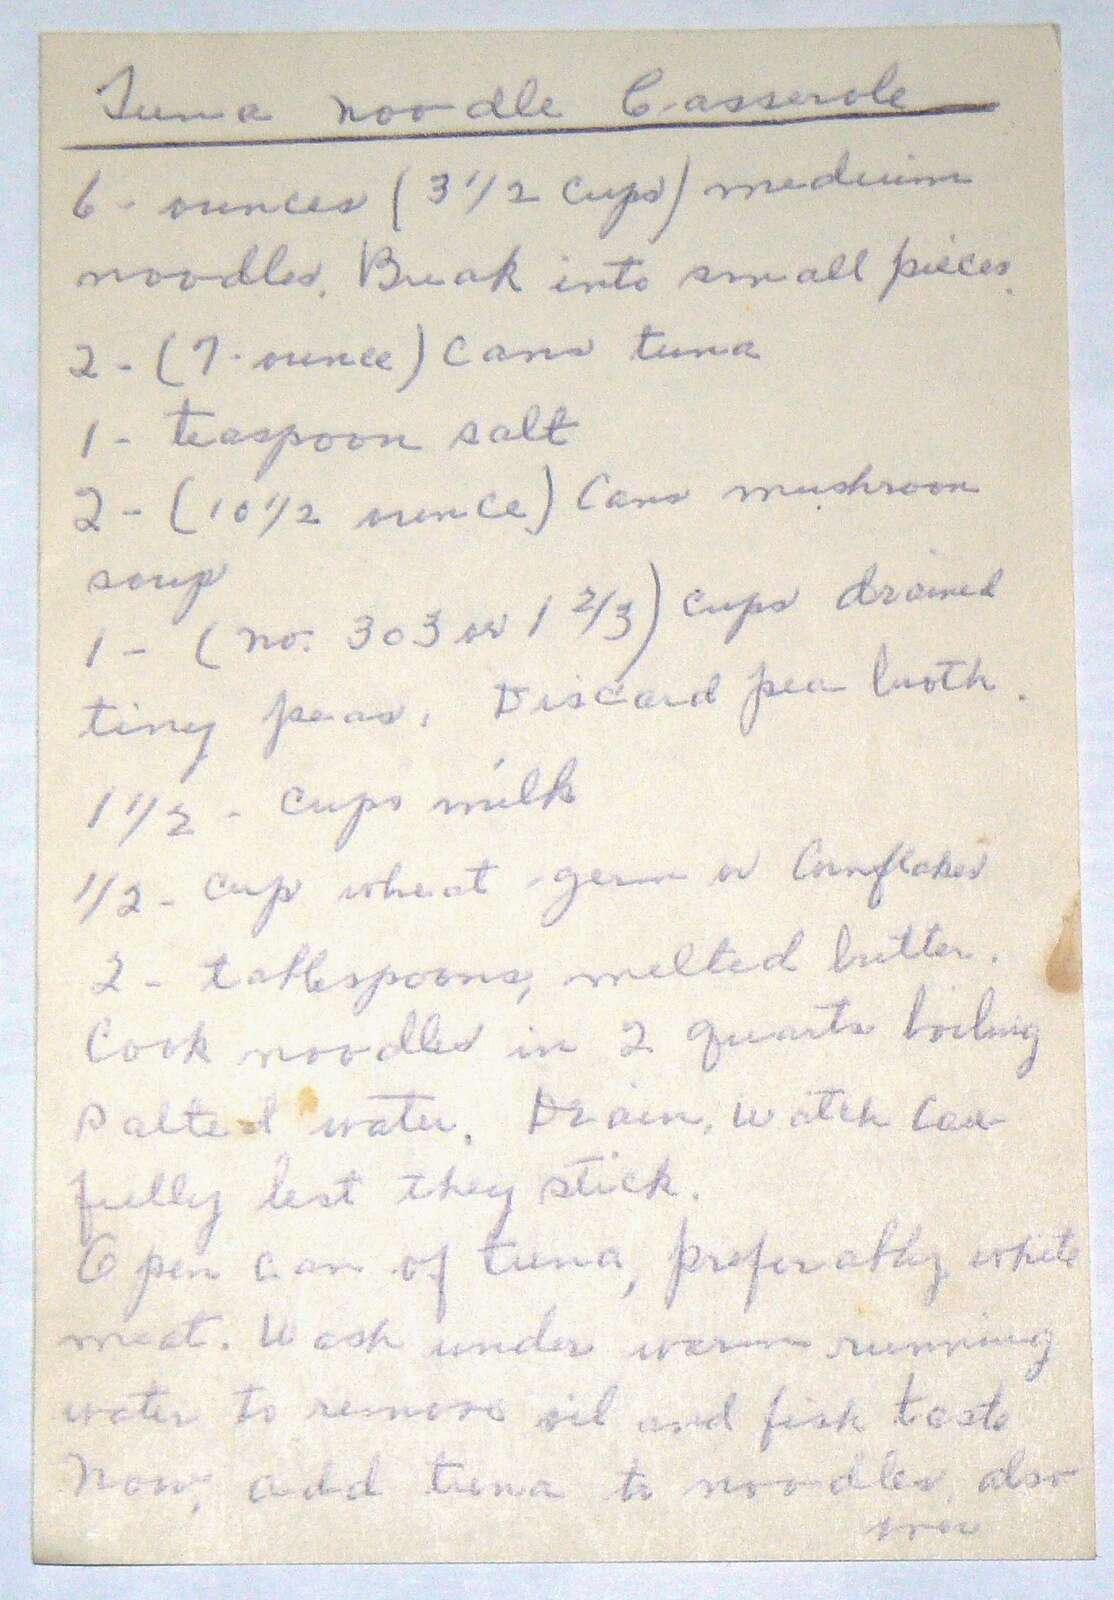 Tuna noodle Casserole
6 - ounces (3 1/2 cups) medium
noodles. Break into small pieces.
2 - (7 - ounce) cans tuna
1 - teaspoon salt
2 - (10 1/2 ounce) Cans mushroom
soup
1 - (no. 303 or 1 2/3) cups drained
tiny peas. Discard pea broth.
1 1/2 - cups milk
1/2 - cup wheat germ or Cornflakes
2 - tablespoons, melted butter.
Cook noodles in 2 quarts boiling
salted water. Drain. Watch care
fully lest they stick.
Open can of tuna, preferably white
meat. Wash under warm running
water to remove oil and fish taste
Now, add tuna to noodles, also
over